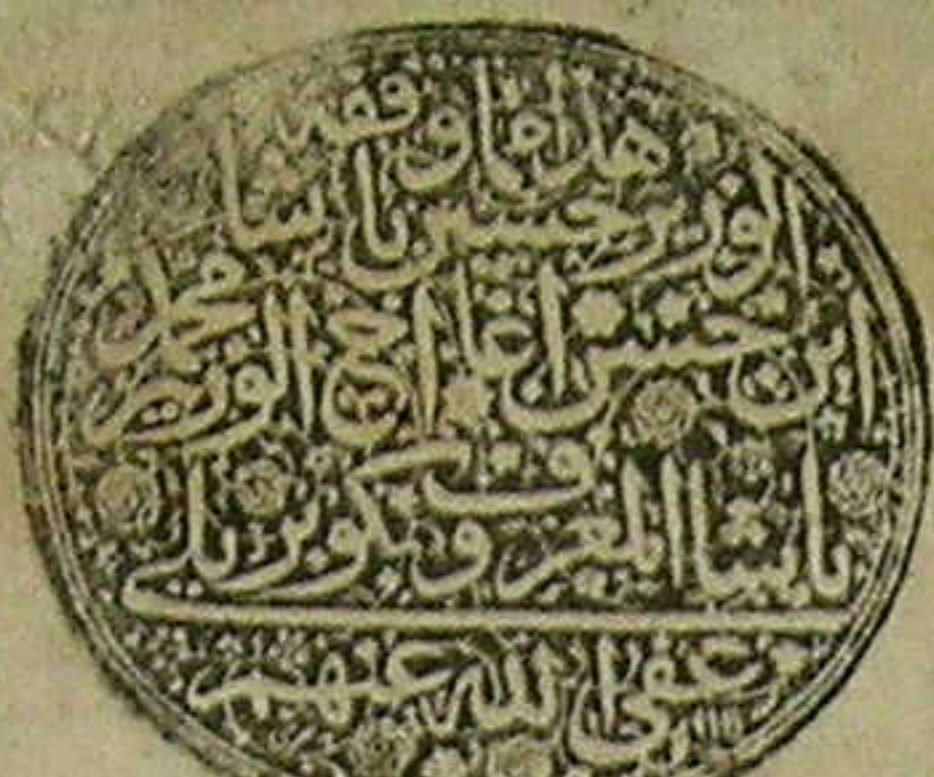 هذا ما وقفه
الوزير حسين باشا
ابن حسن اغا اخي الوزير محمد
باشا المعروف بكوبريلي
عفى الله عنهم